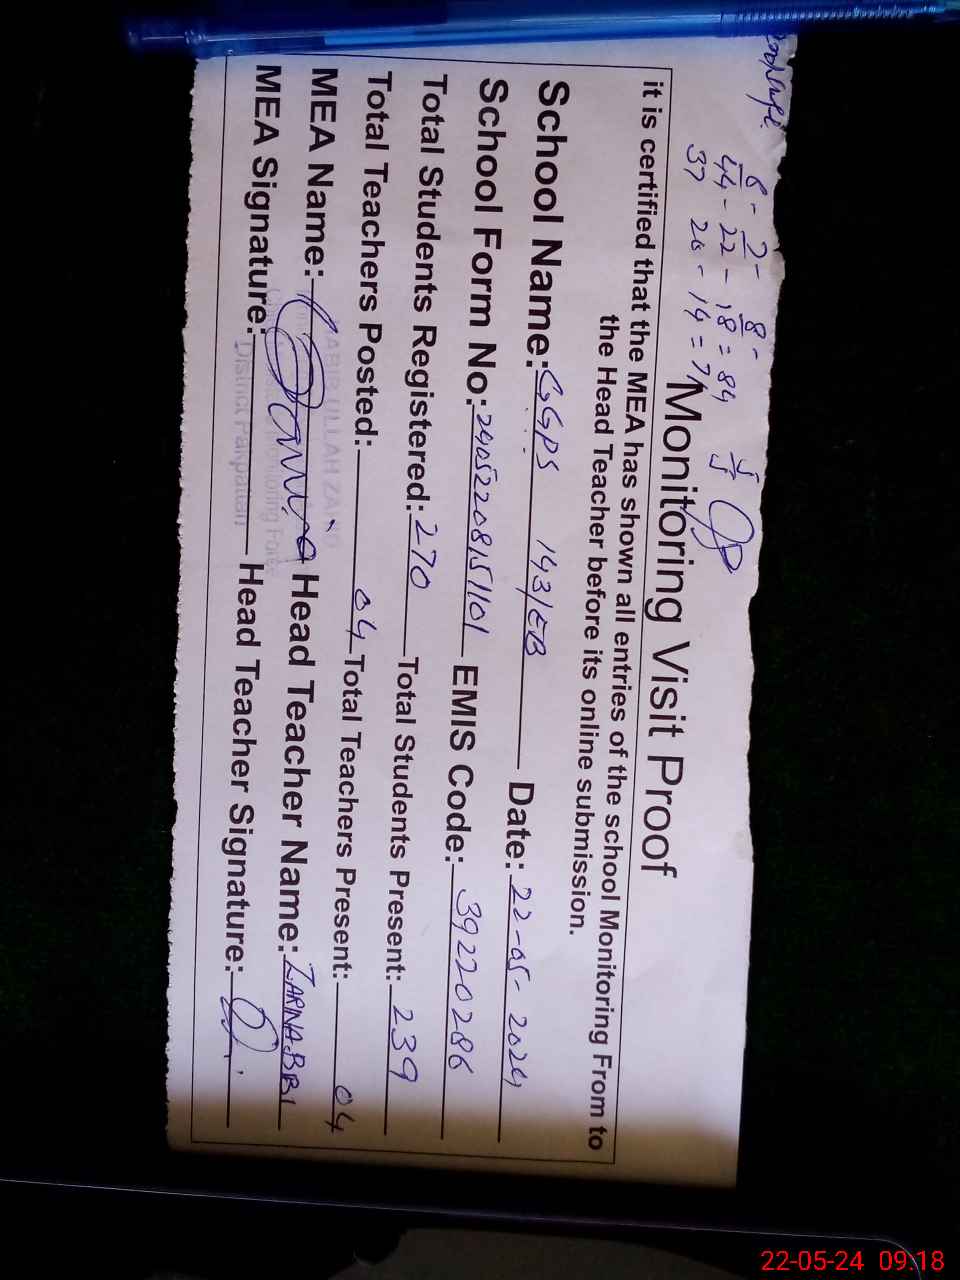 6 - 2 - 8 -
44 - 22 - 18 = 84
37 20 - 14 = 71
Monitoring Visit Proof
it is certified that the MEA has shown all entries of the school Monitoring From to
the Head Teacher before its online submission.
School Name: GGPS 143/EB Date: 22-05-2024
School Form No: 24052208151101 EMIS Code: 39220286
Total Students Registered: 270 Total Students Present: 239
Total Teachers Posted: 04 Total Teachers Present: 04
MEA Name: Head Teacher Name: ZARINA BIBI
ULLAH
MEA Signature: Head Teacher Signature:
Monitoring Force
District Pakpattan
22-05-24 09:18